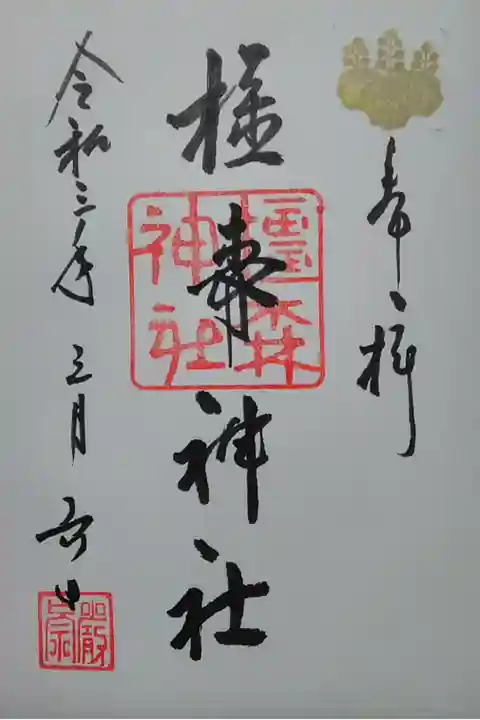 奉拝
橿森神社
橿森
神社
令和三年 三月 六日